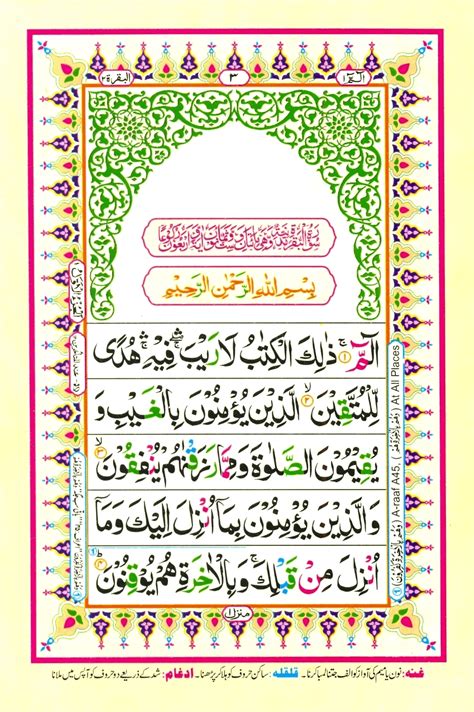 الٓمّٓ ١
٣
البقرة ٢
سُوْرَةُ الْبَقَرَةِ
بِسْمِ اللهِ الرَّحْمٰنِ الرَّحِيْمِ
الٓمّٓ ۚ ١ ذٰلِكَ الْكِتٰبُ لَا رَيْبَ ۛ فِيْهِ ۛ هُدًى
لِّلْمُتَّقِيْنَ ۙ ٢ الَّذِيْنَ يُؤْمِنُوْنَ بِالْغَيْبِ وَ
يُقِيْمُوْنَ الصَّلٰوةَ وَمِمَّا رَزَقْنٰهُمْ يُنْفِقُوْنَ ۙ ٣
وَالَّذِيْنَ يُؤْمِنُوْنَ بِمَآ اُنْزِلَ اِلَيْكَ وَمَآ
اُنْزِلَ مِنْ قَبْلِكَ ۚ وَبِالْاٰخِرَةِ هُمْ يُوْقِنُوْنَ ؕ ٤
At All Places
A-raaf A45,
منزل ١
غنه: نون یا میم کی آواز کو الف جتنا لمبا کرنا۔ قلقله: ساکن حروف کو ہلا کر پڑھنا۔ ادغام: شد کے ذریعے دو حروف کو آپس میں ملانا